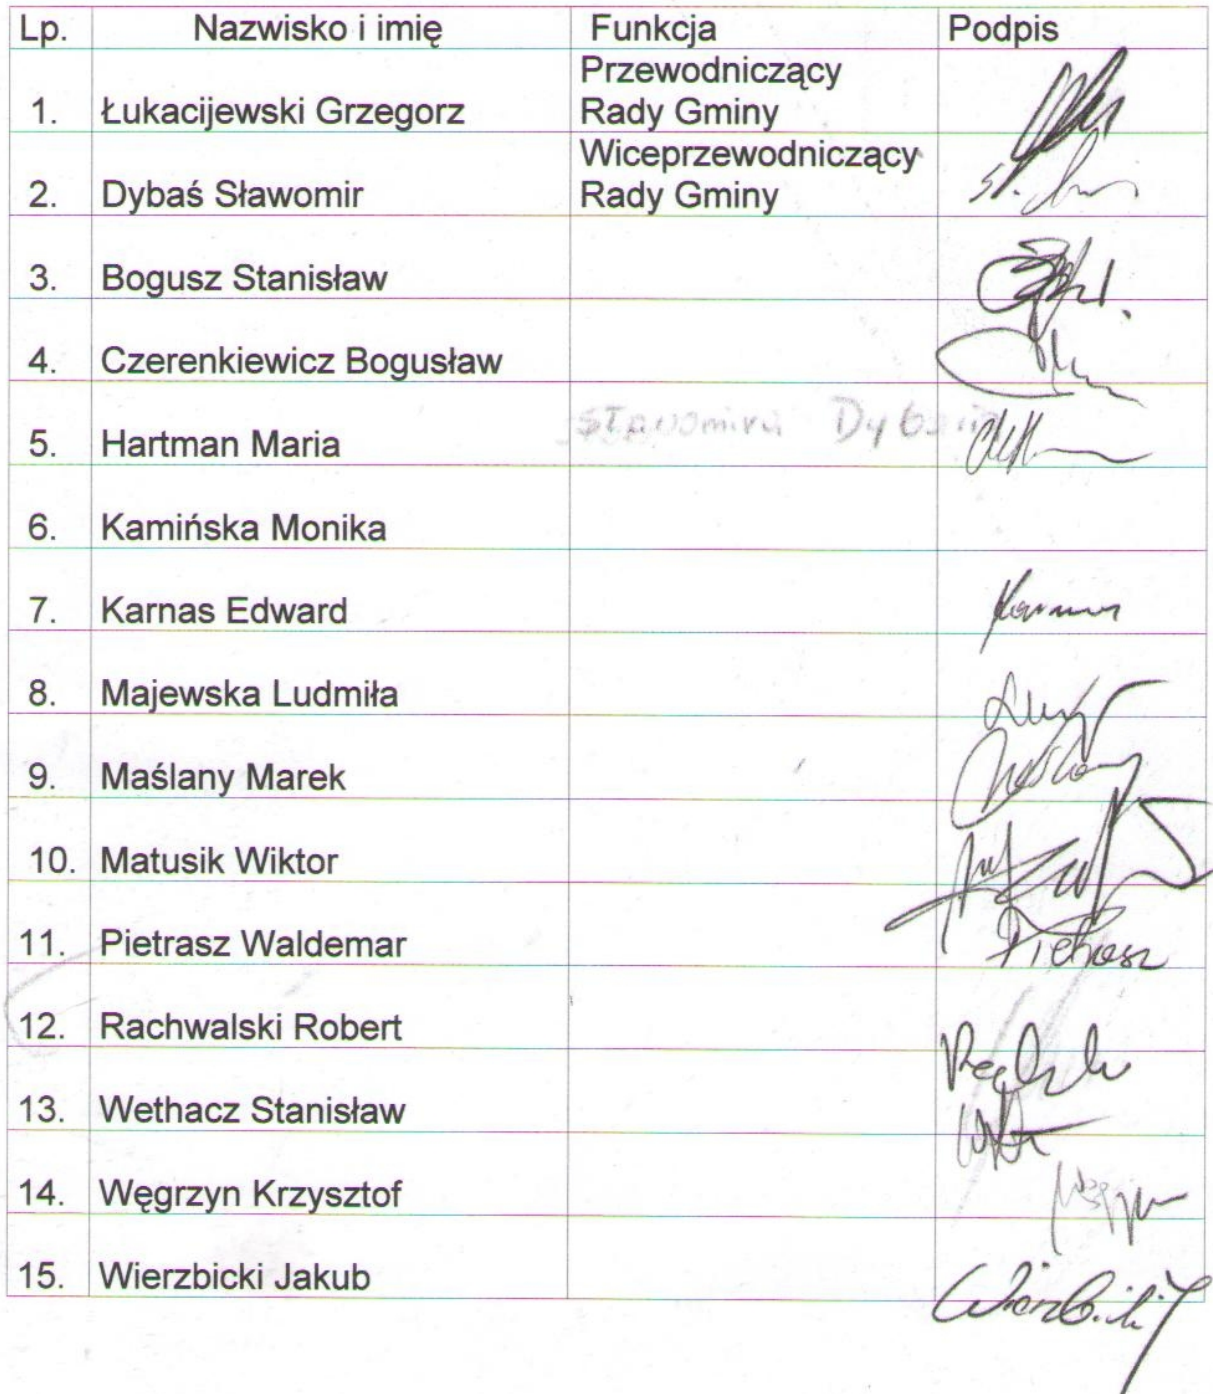 Lp. Nazwisko i imię Funkcja Podpis
1. Łukacijewski Grzegorz Przewodniczący
Rady Gminy
2. Dybaś Sławomir Wiceprzewodniczący
Rady Gminy
3. Bogusz Stanisław
4. Czerenkiewicz Bogusław
5. Hartman Maria
6. Kamińska Monika
7. Karnas Edward
8. Majewska Ludmiła
9. Maślany Marek
10. Matusik Wiktor
11. Pietrasz Waldemar Pietrasz
12. Rachwalski Robert
13. Wethacz Stanisław
14. Węgrzyn Krzysztof
15. Wierzbicki Jakub